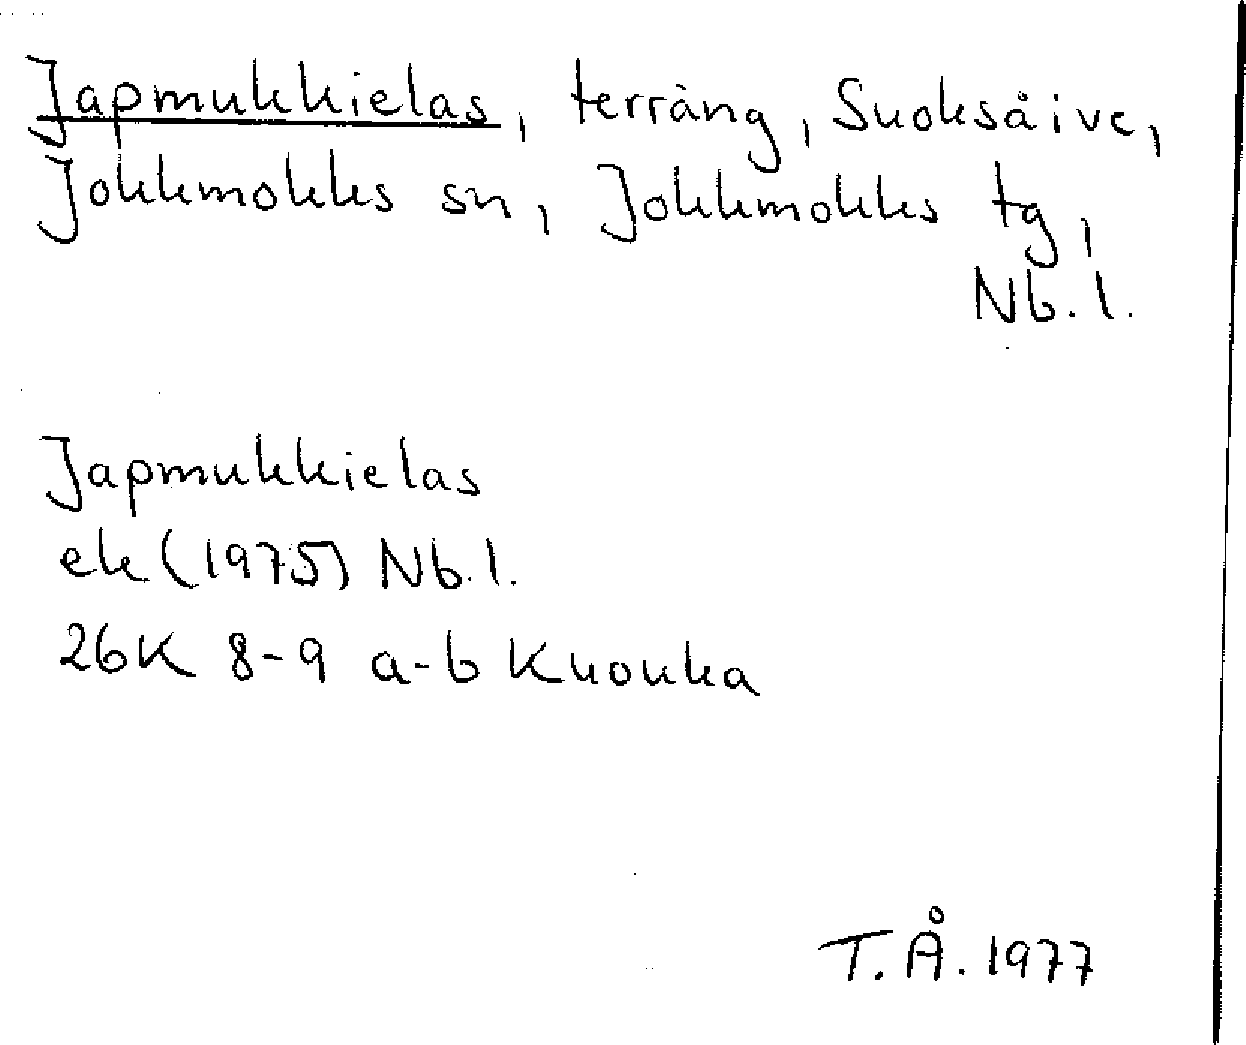 Japmukkielas, terräng, Suoksåive,
Jokkmokks sn, Jokkmokks tg,
Nb.l.
Japmukkielas
ek (1975) Nb.l.
26K 8-9 a-b Kuouka
T.Å. 1977